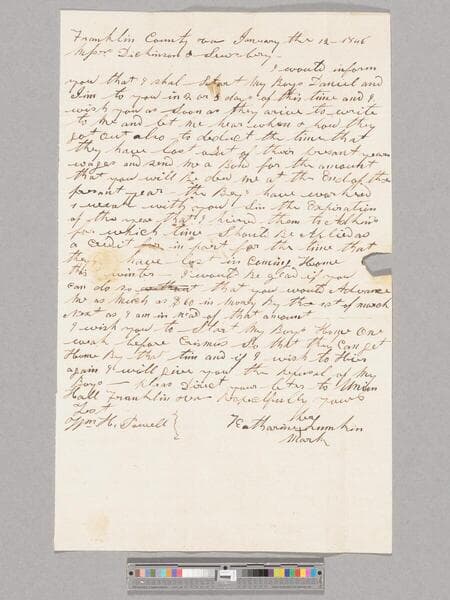 Franklin County va January the 12 - 1846
Mssrs Dickinson & Shrewsbery -
I would inform
you that I shal Start My Boys Daniel and
Jim to you in 2 or 3 days of this time and I
wish you as soon as they arive to write
to me and let me hear when & how they
got out also to deduct the time that
they have lost out of their present years
wages and send me a Bond for the amount
that you will be due me at the End of the
present year - the Boys have worked
1 week with you Sin the Expiration
of the year that I hierd them to
for which time Should Be Aplied as
a Credit for in part for the time that
they have lost in Coming Home
this winter - I would be glad if you
can do so that you would Advance
me as much as $60 in Money By the 1st of march
Next as I am in nead of that amount
I wish you to Start My Boys Home One
weak before Crismus So that they Can get
Home By that time and if I wish to Hier
again I will give you the refusal of My
Boys - pleas Direct your leters to Union
Hall Franklin va Respectfully yours
Test
Wm H. Powell } Katharine Lumkin
her
Mark